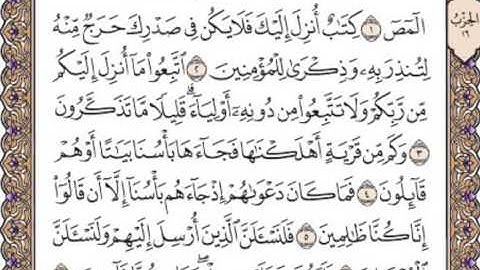 الٓمٓصٓ ١ كِتَٰبٌ أُنزِلَ إِلَيْكَ فَلَا يَكُن فِى صَدْرِكَ حَرَجٌ مِّنْهُ
لِتُنذِرَ بِهِۦ وَذِكْرَىٰ لِلْمُؤْمِنِينَ ٢ ٱتَّبِعُوا۟ مَآ أُنزِلَ إِلَيْكُم
مِّن رَّبِّكُمْ وَلَا تَتَّبِعُوا۟ مِن دُونِهِۦٓ أَوْلِيَآءَ ۗ قَلِيلًا مَّا تَذَكَّرُونَ
٣ وَكَم مِّن قَرْيَةٍ أَهْلَكْنَٰهَا فَجَآءَهَا بَأْسُنَا بَيَٰتًا أَوْ هُمْ
قَآئِلُونَ ٤ فَمَا كَانَ دَعْوَىٰهُمْ إِذْ جَآءَهُم بَأْسُنَآ إِلَّآ أَن قَالُوٓا۟
إِنَّا كُنَّا ظَٰلِمِينَ ٥ فَلَنَسْـَٔلَنَّ ٱلَّذِينَ أُرْسِلَ إِلَيْهِمْ وَلَنَسْـَٔلَنَّ
الحِزْبُ
١٦